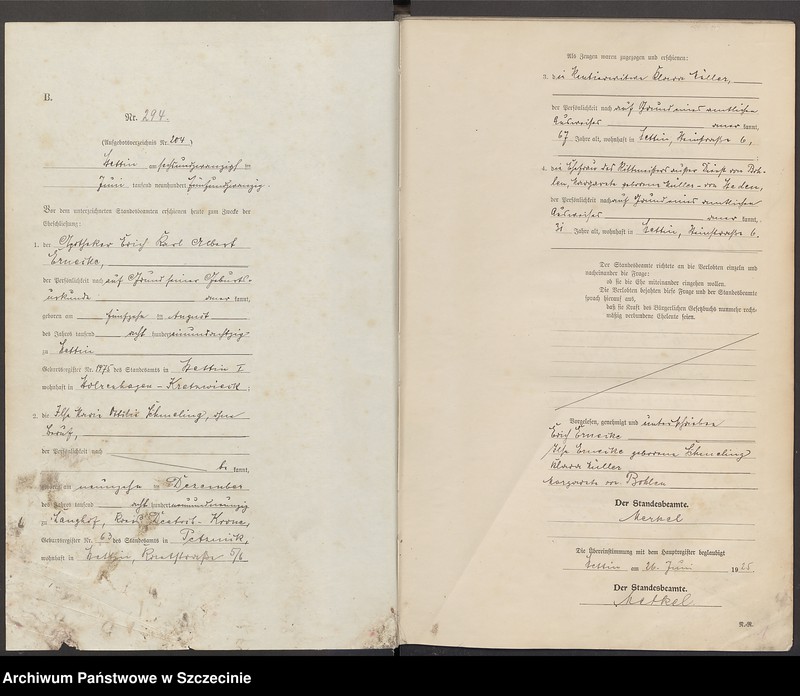 B.
Nr. 294.
(Aufgebotsverzeichnis Nr. 204)
Stettin am sechsundzwanzigsten
Juni tausend neunhundert fünfundzwanzig.
Vor dem unterzeichneten Standesbeamten erschienen heute zum Zwecke der
Eheschließung:
1. der Apotheker Erich Karl Albert
der Persönlichkeit nach auf Grund seiner Geburts-
urkunde anerkannt,
geboren am fünfzehn ten August
des Jahres tausend acht hundert einundachtzig
zu Stettin
Geburtsregister Nr. 1975 des Standesamts in Stettin I
wohnhaft in
2. die Ilse Marie Schmeling, ohne
Beruf,
der Persönlichkeit nach
be kannt,
geboren am neunzehn ten Dezember
des Jahres tausend acht hundert neunundneunzig
zu Langhof, Kreis Deutsch-Krone,
Geburtsregister Nr. 63 des Standesamts in Petznick,
wohnhaft in Stettin, 5/6
Als Zeugen waren zugezogen und erschienen:
3. die Rentierwitwe Klara Müller,
der Persönlichkeit nach auf Grund eines amtlichen
Ausweises anerkannt,
67 Jahre alt, wohnhaft in Stettin, 6,
4. die Ehefrau des Rittmeisters außer Dienst von Boh-
len, Margarete geborene Müller
der Persönlichkeit nach auf Grund eines amtlichen
Ausweises anerkannt,
31 Jahre alt, wohnhaft in Stettin, 6.
Der Standesbeamte richtete an die Verlobten einzeln und
nacheinander die Frage:
ob sie die Ehe miteinander eingehen wollen.
Die Verlobten bejahten diese Frage und der Standesbeamte
sprach hierauf aus,
daß sie kraft des Bürgerlichen Gesetzbuchs nunmehr recht-
mäßig verbundene Eheleute seien.
Vorgelesen, genehmigt und unterschrieben
Erich
Ilse geborene Schmeling
Klara Müller
Margarete von Bohlen
Der Standesbeamte.
Merkel
Die Übereinstimmung mit dem Hauptregister beglaubigt
Stettin am 26. Juni 1925.
Der Standesbeamte.
Merkel
Archiwum Państwowe w Szczecinie